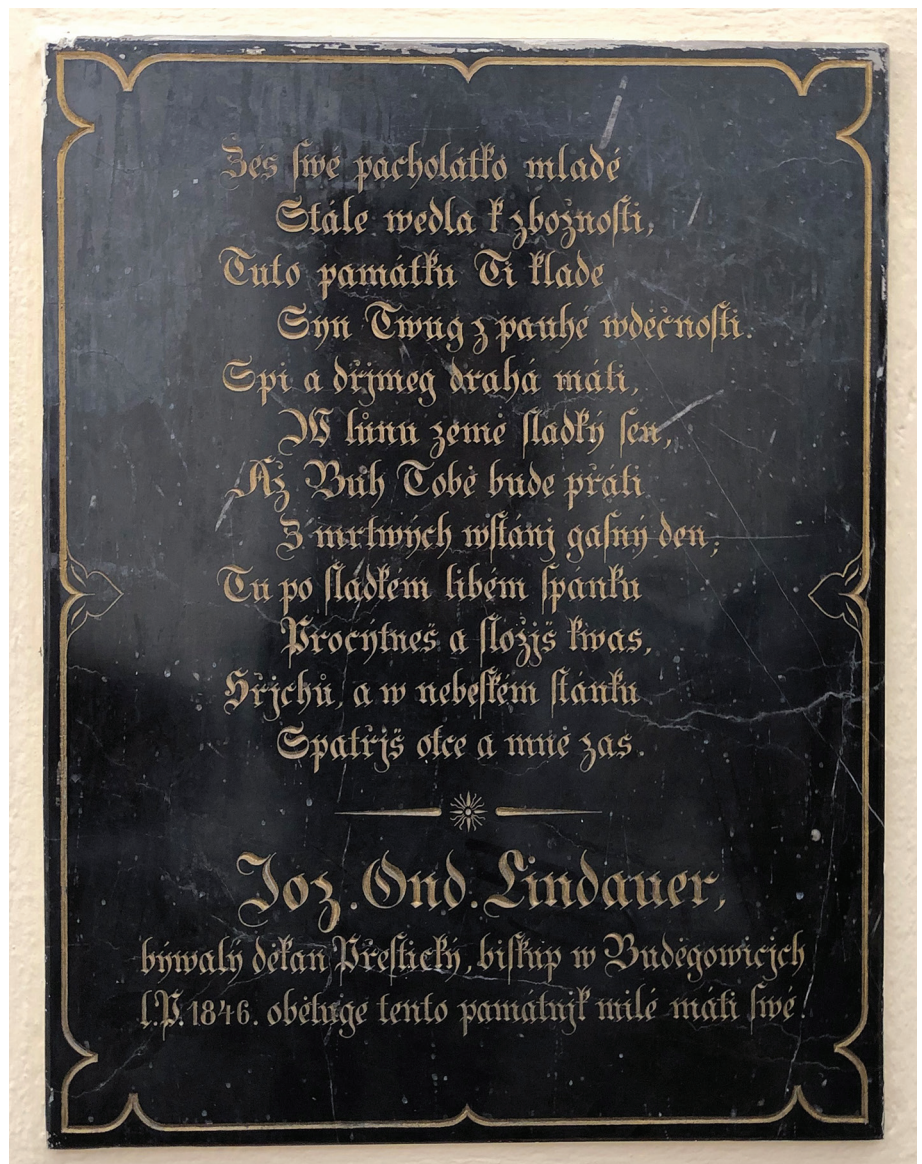 Žes swé pacholátko mladé
Stále wedla k zbožnosti,
Tuto památku Ti klade
Syn Twug z pauhé wděčnosti.
Spi a dřjmeg drahá máti,
W lůnu země sladký sen,
Až Bůh Tobě bude přáti
Z mrtwých wstanj gasný den;
Tu po sladkém libém spanku
Procýtneš a složjš kwas,
Hřjchů, a w nebeském stánku
Spatřjš otce a mne zas.
Joz. Ond. Lindauer,
býwalý děkan Přestický, biskup w Buděgowicjch
l.P. 1846. obětuge tento pamatnjk milé máti swé.